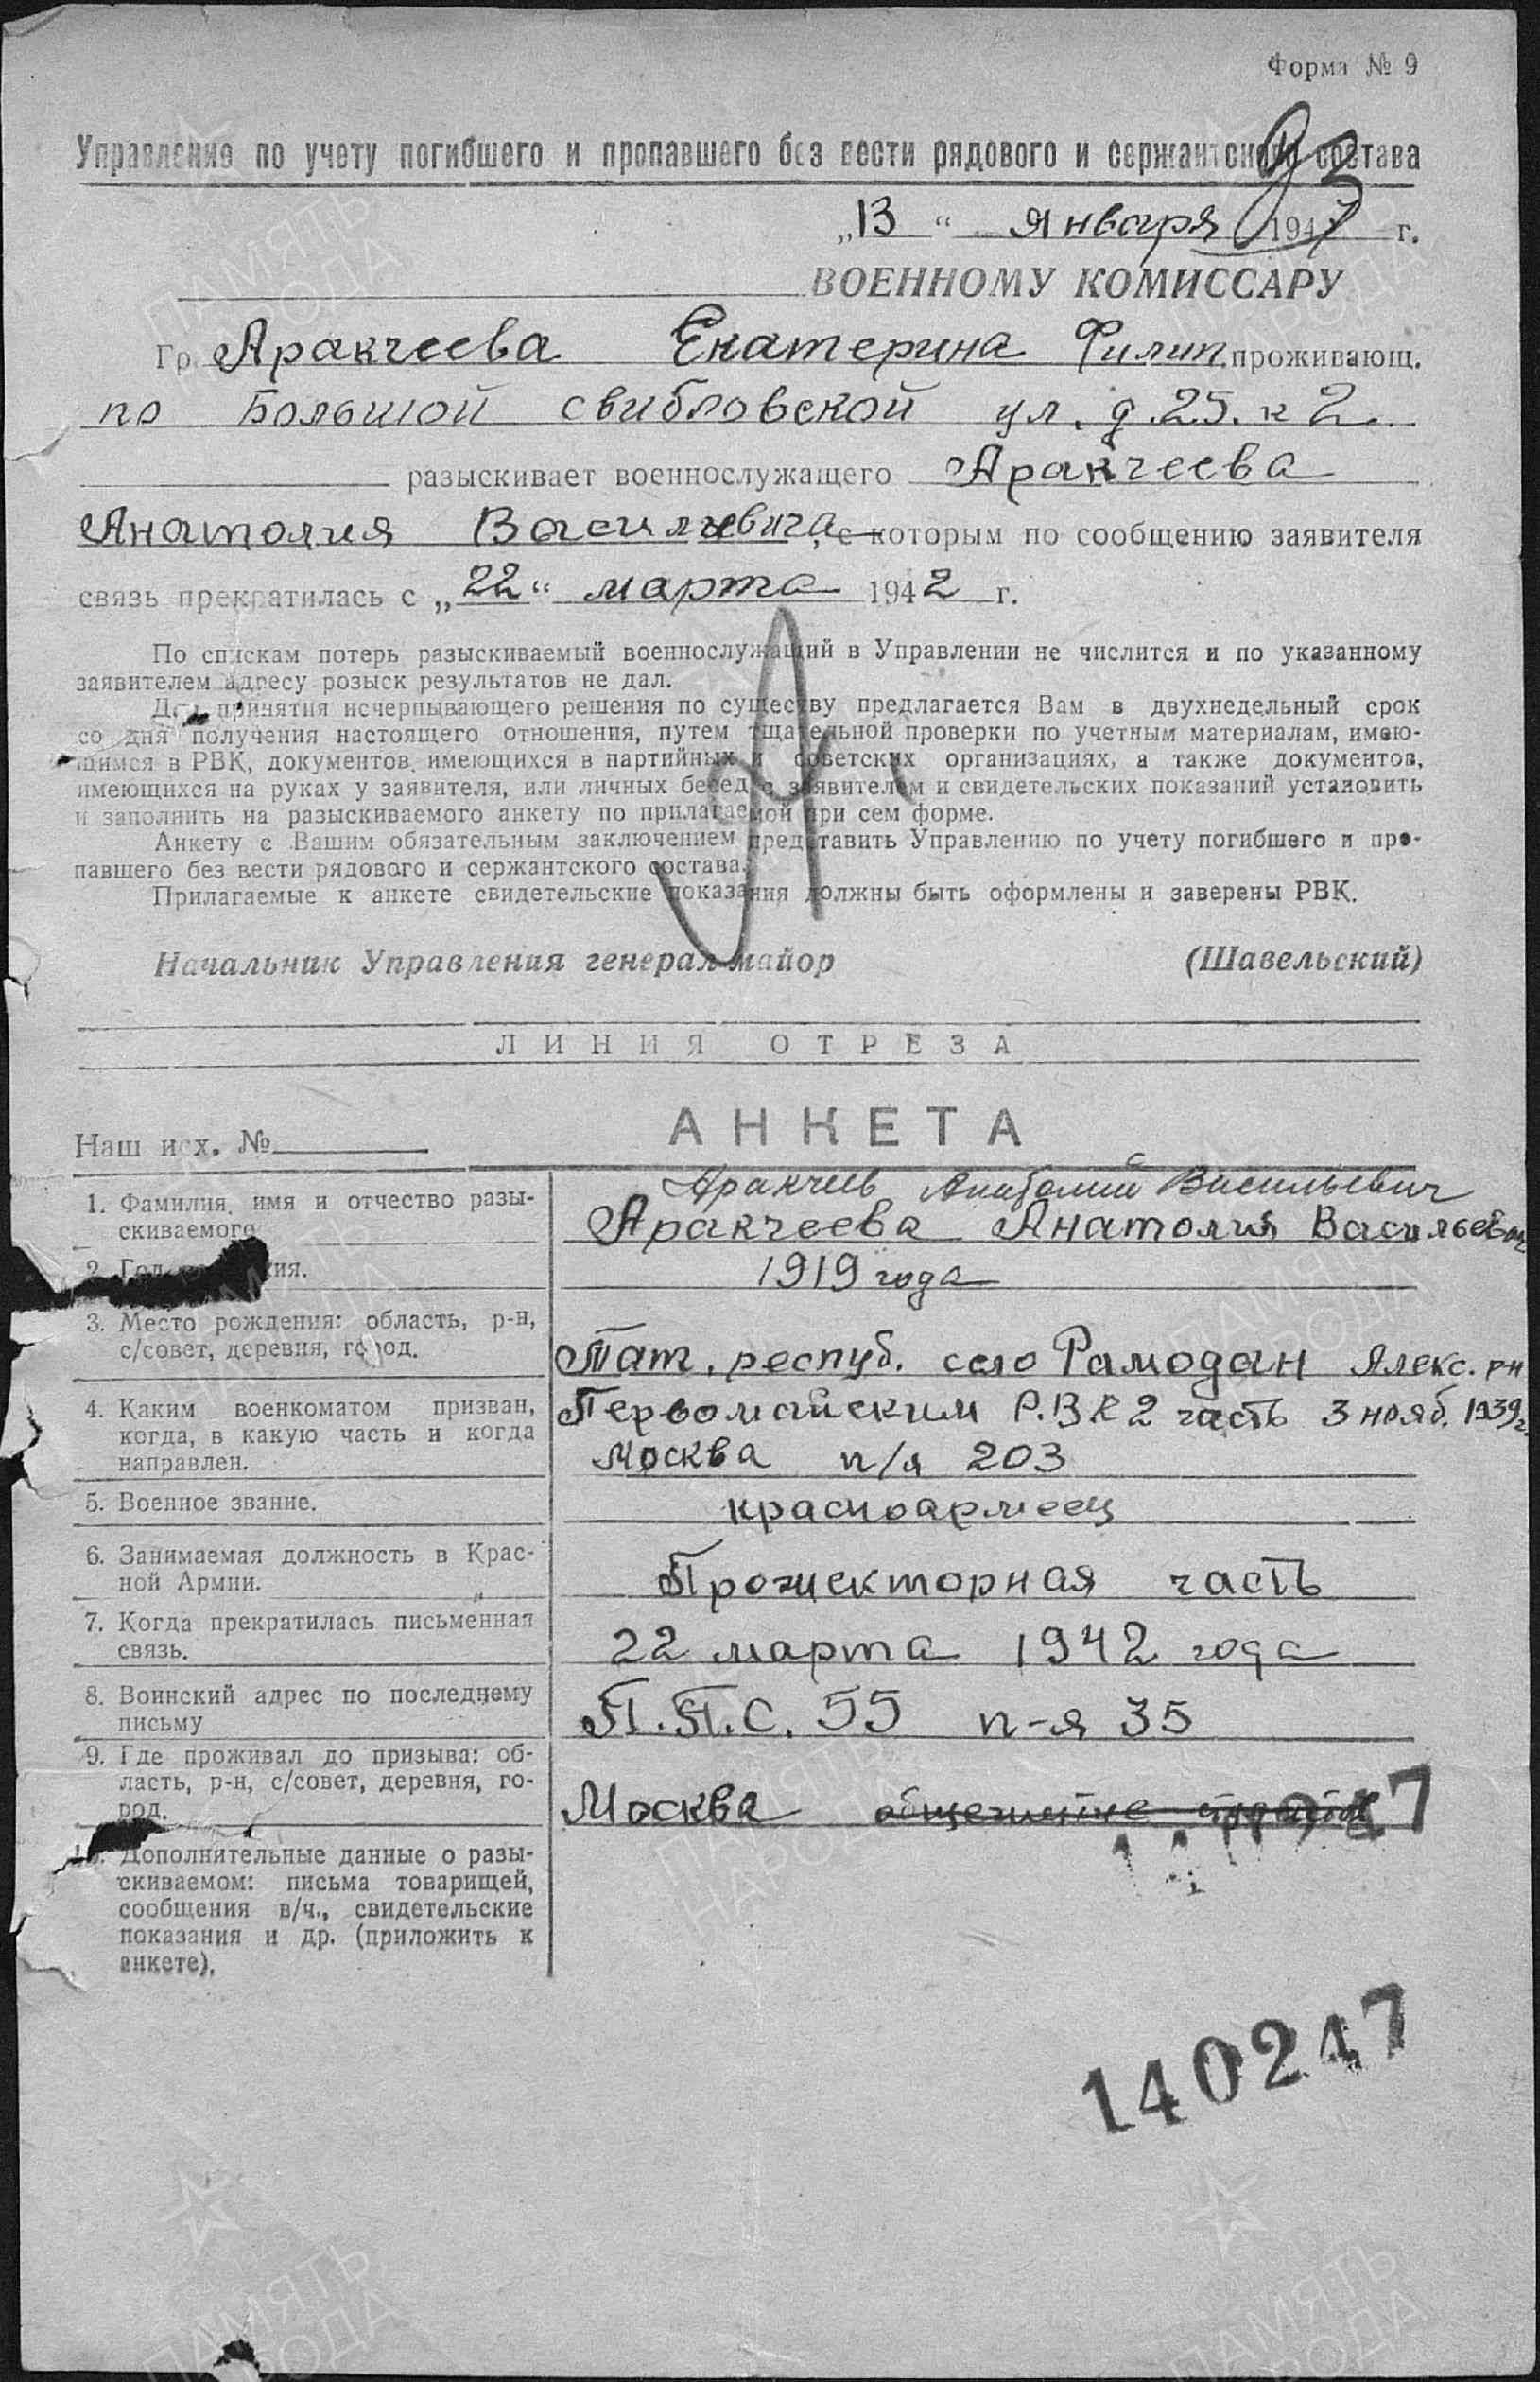 Форма № 9
Управление по учету погибшего и пропавшего без вести рядового и сержантского состава
„13“ января 1947 г.
ВОЕННОМУ КОМИССАРУ
Гр. Аракчеева Екатерина Филип. проживающ.
по Большой свибловской ул. д. 25. к 2
разыскивает военнослужащего Аракчеева
Анатолия Васильевича, с которым по сообщению заявителя
связь прекратилась с „22“ марта 1942 г.
По спискам потерь разыскиваемый военнослужащий в Управлении не числится и по указанному
заявителем адресу розыск результатов не дал.
Для принятия исчерпывающего решения по существу предлагается Вам в двухнедельный срок
со дня получения настоящего отношения, путем тщательной проверки по учетным материалам, имею-
щимся в РВК, документов, имеющихся в партийных и советских организациях, а также документов,
имеющихся на руках у заявителя, или личных бесед с заявителем и свидетельских показаний установить
и заполнить на разыскиваемого анкету по прилагаемой при сем форме.
Анкету с Вашим обязательным заключением представить Управлению по учету погибшего и про-
павшего без вести рядового и сержантского состава.
Прилагаемые к анкете свидетельские показания должны быть оформлены и заверены РВК.
Начальник Управления генерал-майор (Шавельский)
ЛИНИЯ ОТРЕЗА
АНКЕТА
Наш исх. №
Аракчеев Анатолий Васильевич
1. Фамилия, имя и отчество разы-
скиваемого
Аракчеева Анатолия Васильевич
2. Год
1919 года
3. Место рождения: область, р-н,
с/совет, деревня, город.
Тат. респуб. село Рамодан Алекс. р-н
4. Каким военкоматом призван,
когда, в какую часть и когда
направлен.
Первомайским Р.В.К 2 часть 3 нояб. 1939 г.
Москва п/я 203
5. Военное звание.
красноармеец
6. Занимаемая должность в Крас-
ной Армии.
Прожекторная часть
7. Когда прекратилась письменная
связь.
22 марта 1942 года
8. Воинский адрес по последнему
письму
П.П.С. 55 п-я 35
9. Где проживал до призыва: об-
ласть, р-н, с/совет, деревня, го-
род.
Москва общежитие
10. Дополнительные данные о разы-
скиваемом: письма товарищей,
сообщения в/ч., свидетельские
показания и др. (приложить к
анкете).
140247
ПАМЯТЬ НАРОДА